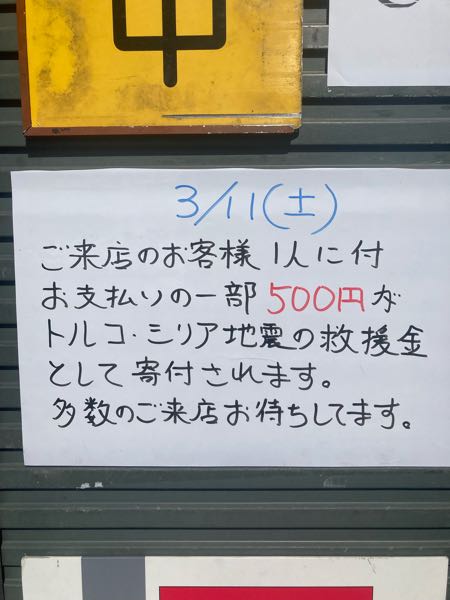 中
3/11(土)
ご来店のお客様1人に付
お支払いの一部500円が
トルコ・ミリア地震の救援金
として寄付されます。
多数のご来店お待ちしてます。